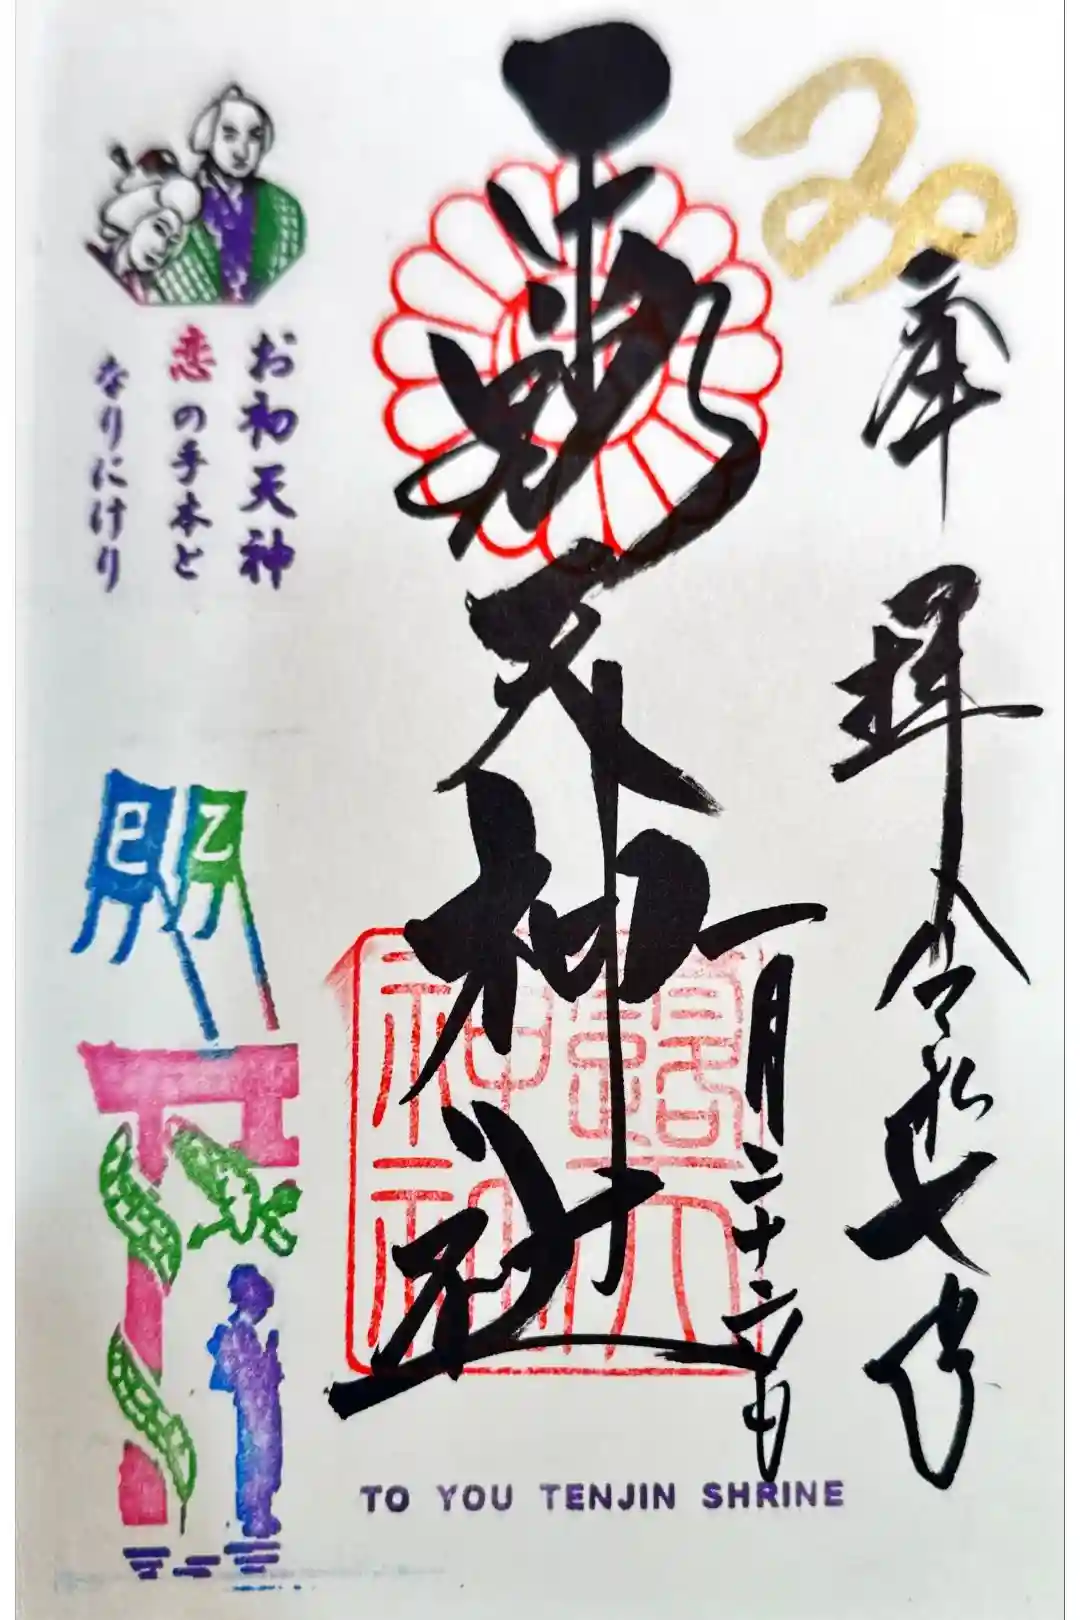 奉拝
令和七年
一月二十六日
露天神社
露天
神社
お初天神
恋の手本と
なりにけり
乙
巳
TO YOU TENJIN SHRINE